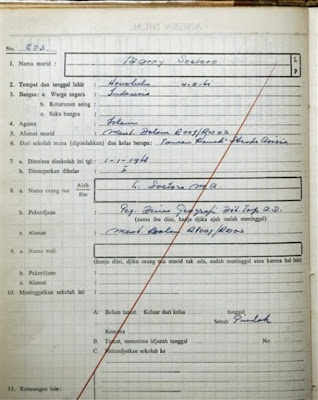 No. 203
1. Nama murid : Barry Soetoro L P
2. Tempat dan tanggal lahir : Honolulu 4-8-61
3. Bangsa : a. Warga negara : Indonesia
b. Keturunan asing :
c. Suku bangsa :
4. Agama : Islam
5. Alamat murid : Ment. Dalam R007/R003
6. Dari sekolah mana (dipindahkan) dan kelas berapa :
7. a. Diterima disekolah ini tgl. : 1-1-1968
b. Ditempatkan dikelas : I
8. a. Nama orang tua Ajah Ibu : L. Soetoro M.A.
b. Pekerdjaan : Peg. Dinas Geografi Dit. Top. A.D.
(nama ibu diisi, hanja djika ajah sudah meninggal)
c. Alamat : Ment. Dalam R007/R003
9. a. Nama wali :
(hanja diisi, djika orang tua murid tak ada, sudah meninggal atau karena hal lain)
b. Pekerdjaan :
c. Alamat :
10. Meninggalkan sekolah ini :
A. Belum tamat. Keluar dari kelas tanggal
Sebab Pindah
Kemana
B. Tamat, menerima idjazah tanggal No.
C. Melandjutkan sekolah ke
11. Keterangan lain :